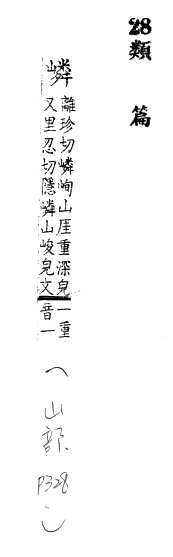 28類篇
嶙
離珍切嶙峋山厓重深皃一重
又里忍切隱嶙山峻皃文音一
(山部 P328)